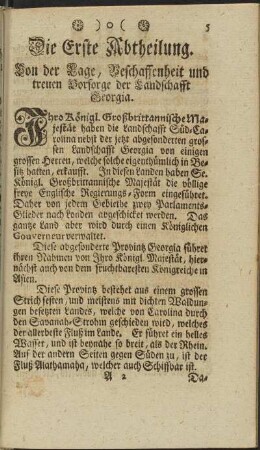 ☙ ) o ( ❧ 5
Die Erste Abtheilung.
Von der Lage, Beschaffenheit und
treuen Vorsorge der Landschafft
Georgia.
Ihro Königl. Großbrittannische Ma-
jestät haben die Landschafft Süd-Ca-
rolina nebst der jetzt abgesonderten gros-
sen Landschafft Georgia von einigen
grossen Herren, welche solche eigenthümlich in Be-
sitz hatten, erkaufft. In diesen Landen haben Se.
Königl. Großbrittannische Majestät die völlige
freye Englische Regierungs-Form eingeführet.
Daher von jedem Gebiethe zwey Parlaments-
Glieder nach Londen abgeschicket werden. Das
gantze Land aber wird durch einen Königlichen
Gouverneur verwaltet.
Diese abgesonderte Provintz Georgia führet
ihren Nahmen von Ihro Königl. Majestät, hier-
nächst auch von dem fruchtbaresten Königreiche in
Asien.
Diese Provintz bestehet aus einem grossen
Strich festen, und meistens mit dichten Waldun-
gen besetzten Landes, welche von Carolina durch
den Savanah-Strohm geschieden wird, welches
der allerbeste Fluß im Lande. Er führet ein helles
Wasser, und ist beynahe so breit, als der Rhein.
Auf der andern Seiten gegen Süden zu, ist der
Fluß Alathamaha, welcher auch Schiffbar ist.
A 2 Da-